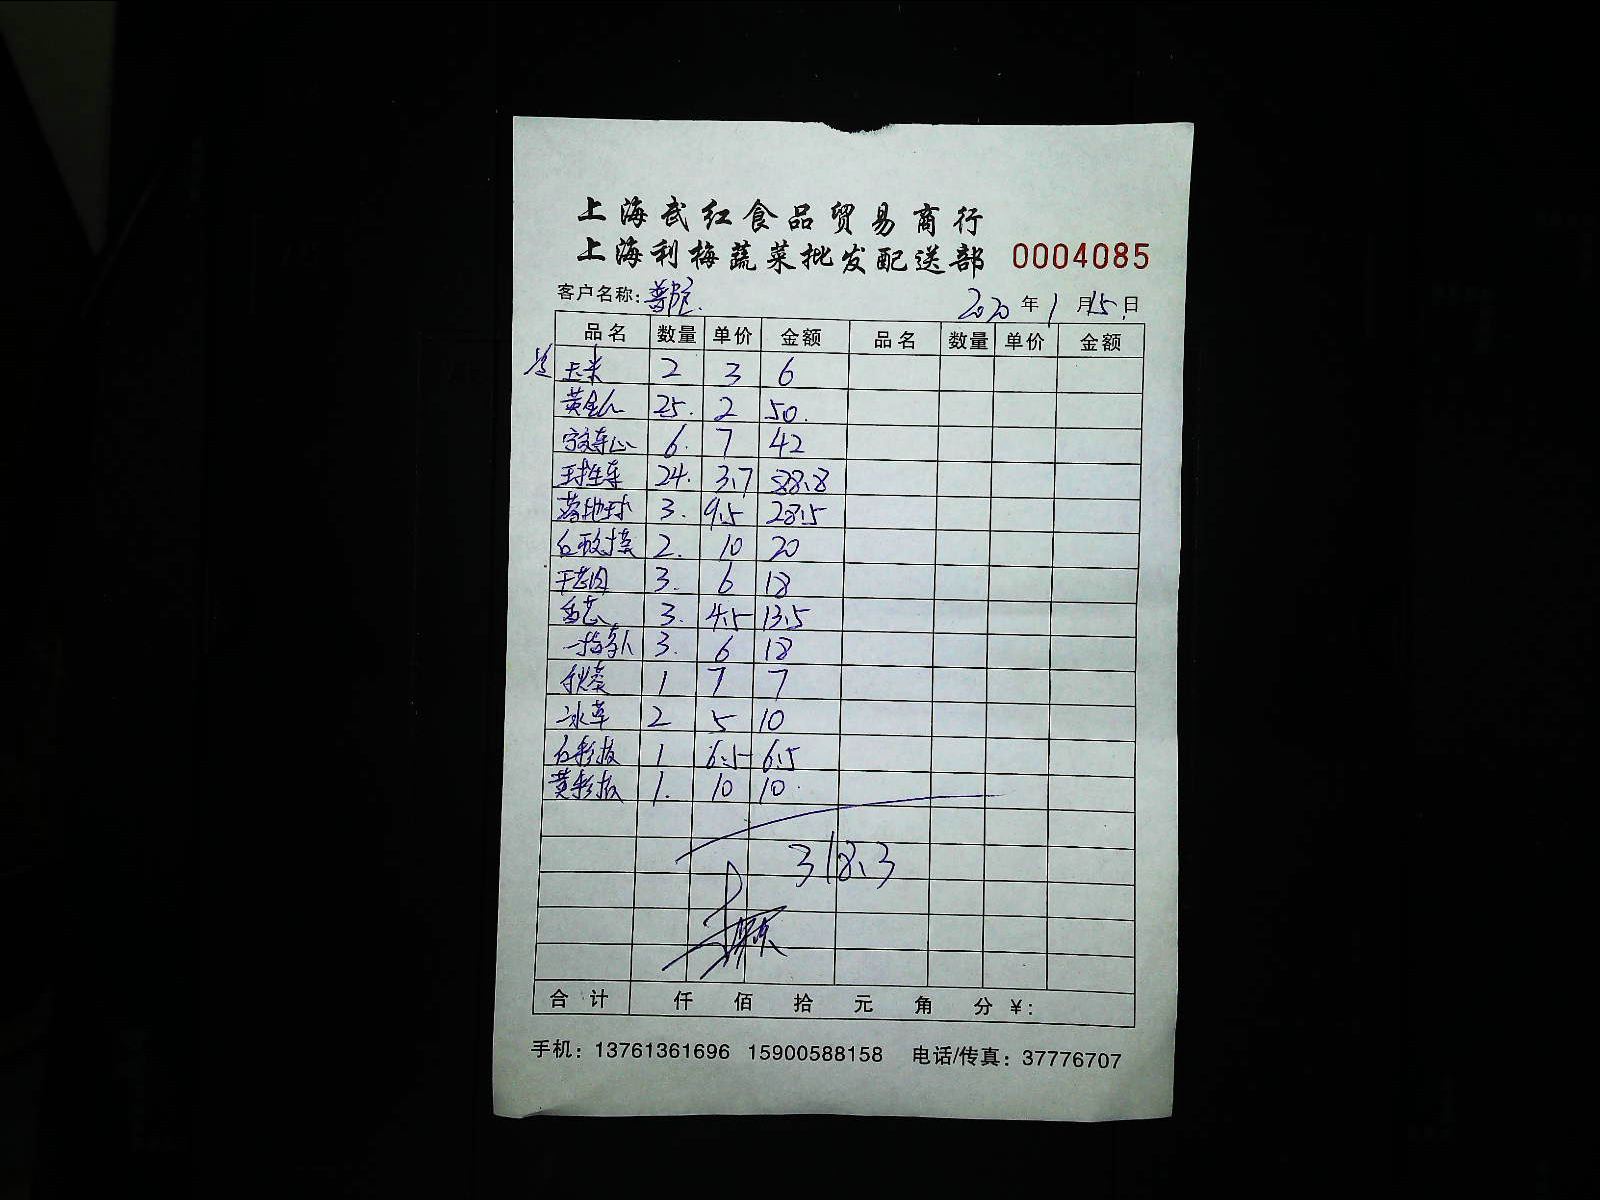 上海武红食品贸易商行
上海利梅蔬菜批发配送部 0004085
客户名称: 普陀 2020年1月15日
品名 数量 单价 金额 品名 数量 单价 金额
玉米 2 3 6
黄金瓜 25. 2 50.
6. 7 42
球生菜 24. 3.7 88.8
落地球 3. 9.5 28.5
2. 10 20
3. 6 18
香芒 3. 4.5 13.5
3. 6 18
秋葵 1 7 7
冰草 2 5 10
红彩椒 1 6.5 6.5
黄彩椒 1. 10 10.
318.3
合计 仟 佰 拾 元 角 分 ¥:
手机: 13761361696 15900588158 电话/传真: 37776707